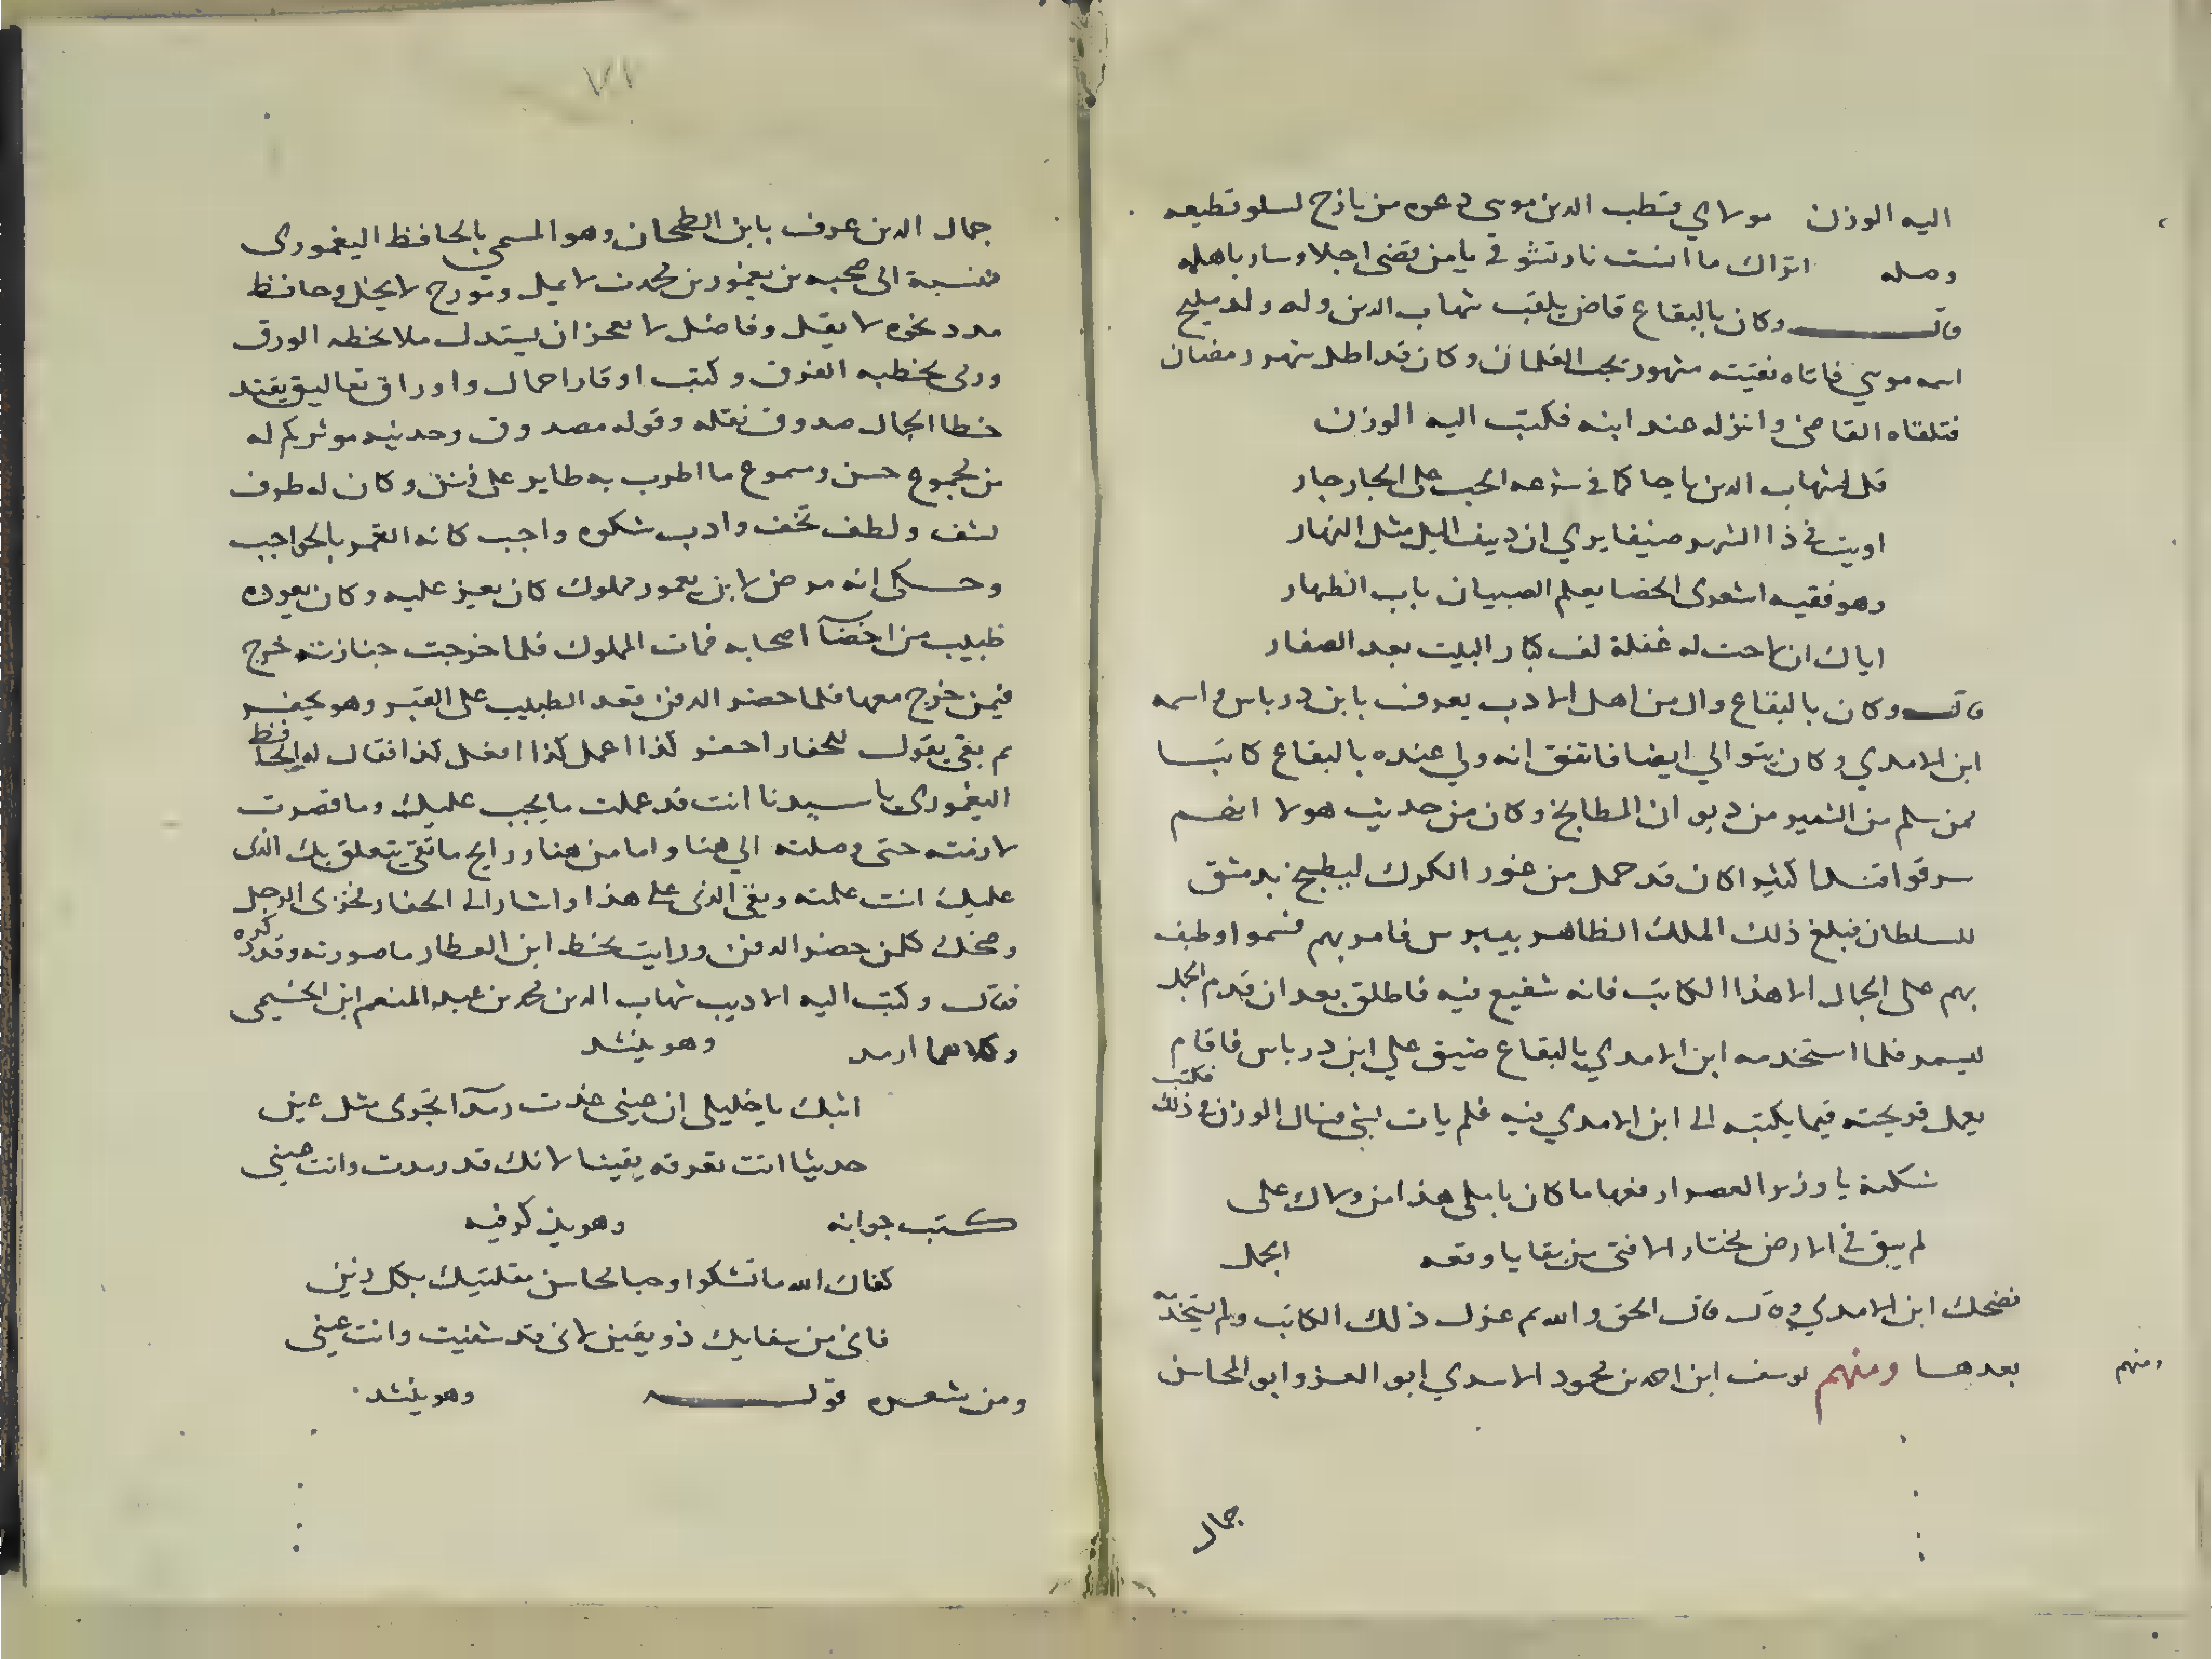 اليه الوزن مولاي قطب الدين موسى دعوه من نازح لسلو تطيعه
وصله اتراك ما انست نار تشوقي يا من قضى اجلا وسار باهله
قال وكان بالبقاع قاض يلقب شهاب الدين وله ولد مليح
اسمه موسي فاتاه فقيه مشهور بحب الغلمان وكان قد اطل شهر رمضان
فتلقاه القاضي وانزله عند ابنه فكتب اليه الوزن
قل لشهاب الدين يا حاكما في شرعه الحب على الجار جار
اويت في ذا الشهر ضيفا يري ان دبيف اليل مثل النهار
وهو فقيه اشعرى الخصا يعلم الصبيان باب الظهار
اياك ان لاحت له غفلة لف كبار البيت بعد الصغار
قال وكان بالبقاع وال من اهل الادب يعرف بابن درباس واسمه
ابن الامدي وكان يتوالي ايضا فاتفق انه ولي عنده بالبقاع كاتبا
ممن سلم من التسمير من ديوان المطابخ وكان من حديث هولا انهم
سرقوا قندا كثيرا كان قد حمل من غور الكرك ليطبخ بدمشق
للسلطان فبلغ ذلك الملك الظاهر بيبرس فامر بهم فسمروا وطيف
بهم على الجمال الا هذا الكاتب فانه شفيع فيه فاطلق بعد ان قدم الجمل
ليسمر فلما استخدمه ابن الامدي بالبقاع ضيق علي ابن درباس فاقام
يعمل قريحته فيما يكتبه الى ابن الامدي فيه فلم يات بشي فسال الوزن في ذلك فكتب
شكية يا وزير العصر ارفعها ما كان يا ملى هذا من ولاك على
لم يبق في الارض مختار الا فتى من بقايا وقعه الجمل
فضحك ابن الامدي وقال قال الحق والله ثم عزل ذلك الكاتب ولم يستخدمه
بعدها ومنهم يوسف ابن احمد بن محمود الاسدي ابو العز وابو المحاسن
ومنهم
جمال
٧٧
جمال الدين عرف بابن الطحان وهو المسمى بالحافظ اليغمورى
فنسبة الى صحبه بن يغمور بن محدث لا يمل ومورخ لا يخل وحافظ
مدد بحره لا يقل وفاضل لا يعجز ان يستدل ملا بخطه الورق
ورمى بخطبه الفرق وكتب اوقار احمال واوراق تعاليق تفند
خطا الجمال صدوق نقله وقوله مصدوق وحديثه موثر كم له
من مجموع حسن ومسموع ما اطرب به طاير على فنن وكان له ظرف
لشف ولطف تخف وادب شكره واجب كانه القمر بالحواجب
وحكى انه مرض لابن يعمور مملوك كان يعيز عليه وكان يعوده
طبيب من اخصآ اصحابه فمات المملوك فلما خرجت جنازته خرج
فيمن خرج معها فلما حضر الدفن قعد الطبيب على القبر وهو يحفر
ثم بقى يقول للحفار احفر كذا اعمل كذا افعل كذا فقال له الحافظ
اليغمورى يا سيدنا انت قد عملت ما يجب عليك وما قصرت
لازمته حتى وصلته الي هنا واما من هنا ورايح ما بقى يتعلق بك الذى
عليك انت عملته وبقى الذى على هذا واشار الى الحفار فخزى الرجل
وضحك كلمن حضر الدفن ورايت بخط ابن العطار ما صورته وقد ذكره
فقال وكتب اليه الاديب شهاب الدين محمد بن عبد المنعم ابن الخيمى
وكلاهما ارمد وهو ينشد
ابثك يا خليلى ان عينى غدت رمدآ تجرى مثل عين
حديثا انت تعرفه يقينا لانك قد رمدت وانت عينى
كتب جوابه وهو يذكر فيه
كفاك الله ما تشكوا وحبا محاسن مقلتيك بكل زين
فانى من شفايك ذو يقين لانى قد شفيت وانت عينى
ومن شعره قوله وهو ينشد